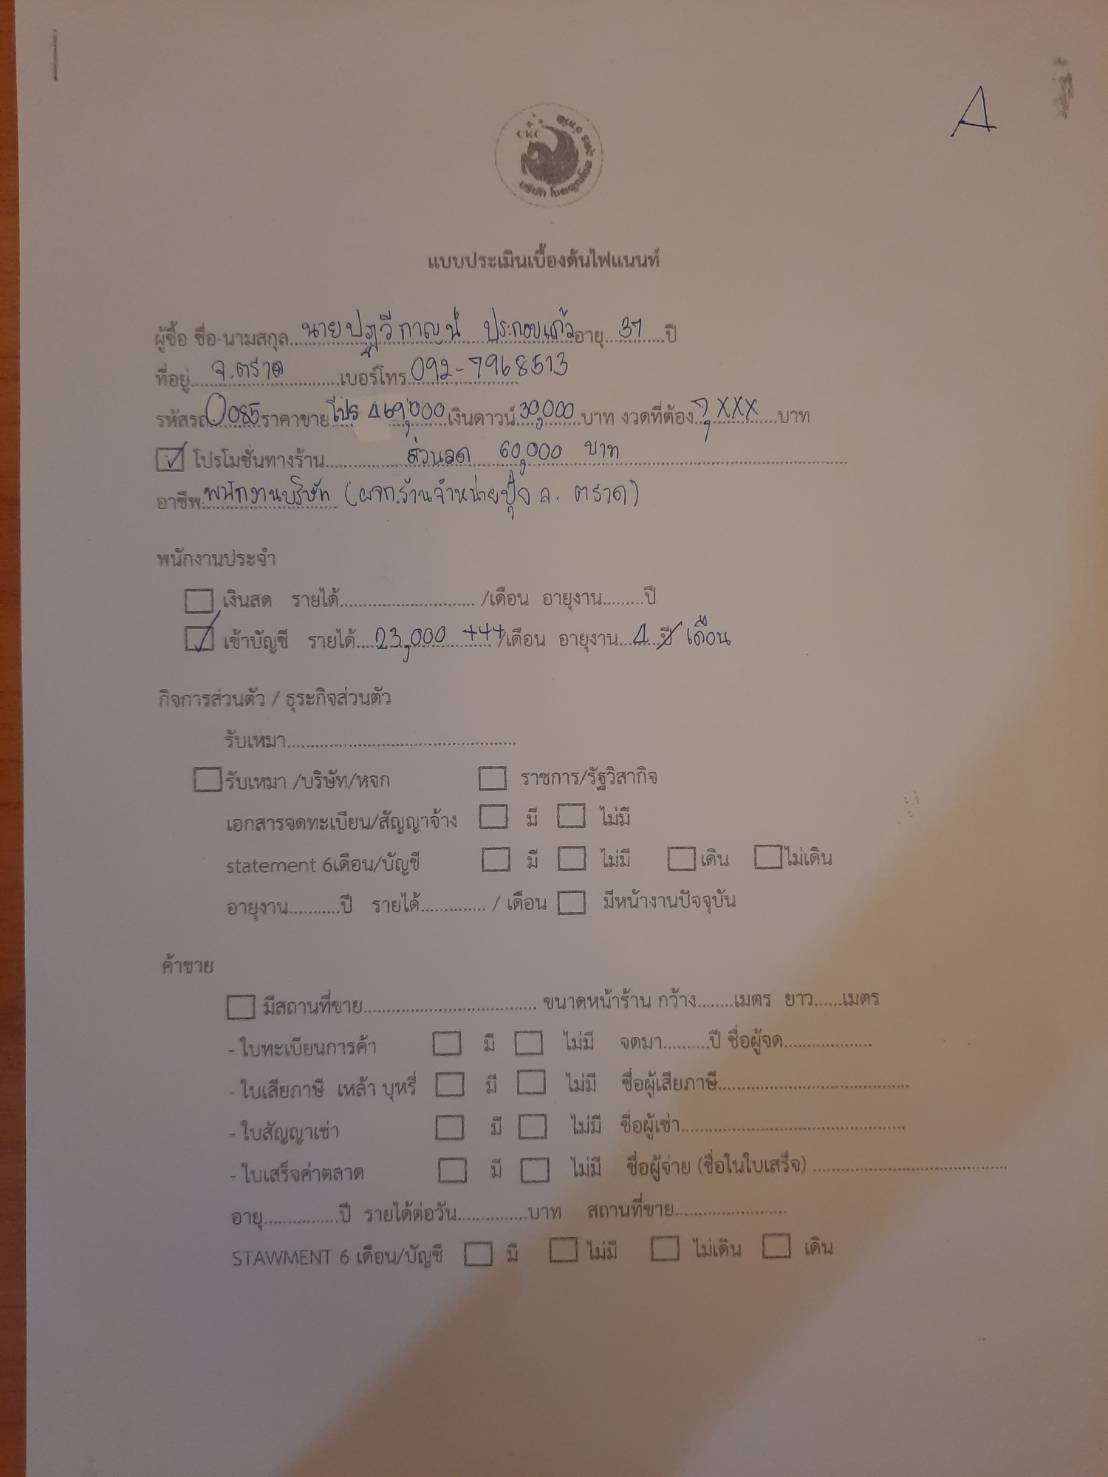 A
CKC
แบบประเมินเบื้องต้นไฟแนนท์
ผู้ซื้อ ชื่อ-นามสกุล นายปฏวีกาญน์ ประกอบแก้ว อายุ 37 ปี
ที่อยู่ จ.ตราด เบอร์โทร 092-7968513
รหัสรถ 0085 ราคาขาย โปร 469,000 เงินดาวน์ 30,000 บาท งวดที่ต้อง 7,XXX บาท
โปรโมชั่นทางร้าน ส่วนลด 60,000 บาท
อาชีพ พนักงานบริษัท (ผจก.ร้านจำหน่ายปุ๋ย จ. ตราด)
พนักงานประจำ
เงินสด รายได้ /เดือน อายุงาน ปี
เข้าบัญชี รายได้ 23,000 +++ /เดือน อายุงาน 4 ปี เดือน
กิจการส่วนตัว / ธุระกิจส่วนตัว
รับเหมา
รับเหมา /บริษัท/หจก ราชการ/รัฐวิสากิจ
เอกสารจดทะเบียน/สัญญาจ้าง มี ไม่มี
statement 6เดือน/บัญชี มี ไม่มี เดิน ไม่เดิน
อายุงาน ปี รายได้ / เดือน มีหน้างานปัจจุบัน
ค้าขาย
มีสถานที่ขาย ขนาดหน้าร้าน กว้าง เมตร ยาว เมตร
- ใบทะเบียนการค้า มี ไม่มี จดมา ปี ชื่อผู้จด
- ใบเสียภาษี เหล้า บุหรี่ มี ไม่มี ชื่อผู้เสียภาษี
- ใบสัญญาเช่า มี ไม่มี ชื่อผู้เช่า
- ใบเสร็จค่าตลาด มี ไม่มี ชื่อผู้จ่าย (ชื่อในใบเสร็จ)
อายุ ปี รายได้ต่อวัน บาท สถานที่ขาย
STAWMENT 6 เดือน/บัญชี มี ไม่มี ไม่เดิน เดิน